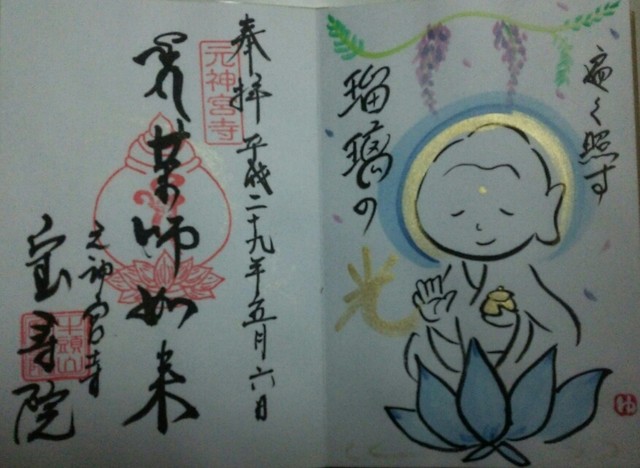 遍く照す
瑠璃の
光
奉拝 平成二十九年五月六日
元神宮寺
薬師如来
元神宮寺
宝寿院
牛頭山